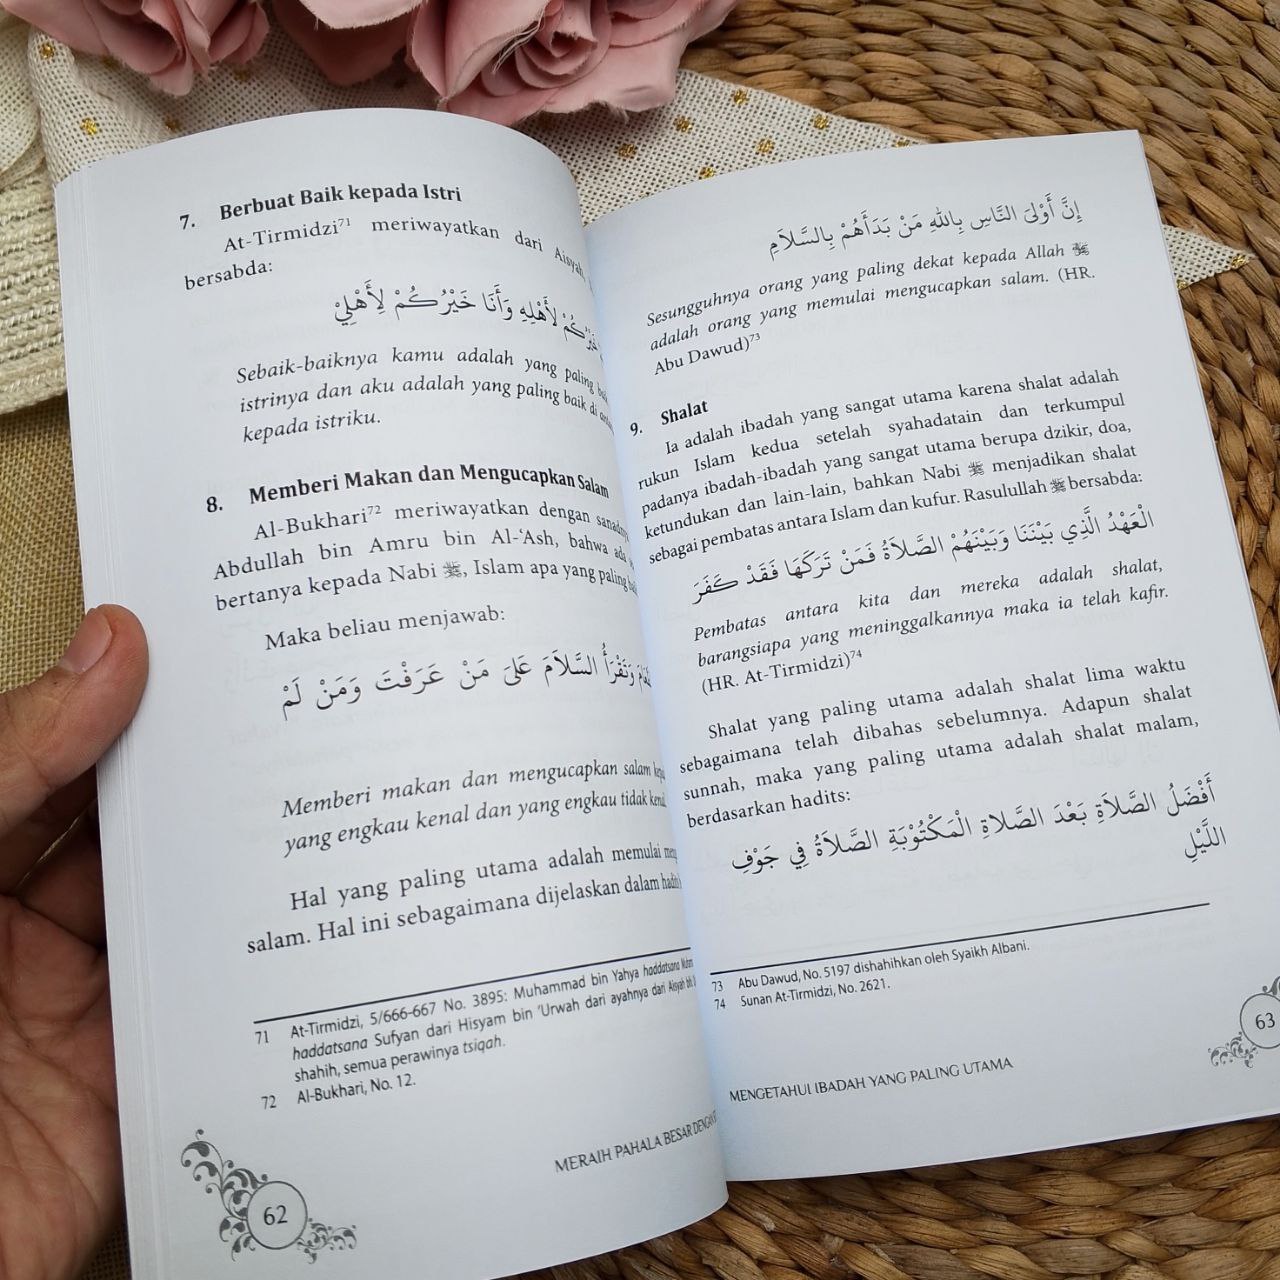 7. Berbuat Baik kepada Istri
At-Tirmidzi71 meriwayatkan dari Aisyah,
bersabda:
خَيْرُكُمْ لِأَهْلِهِ وَأَنَا خَيْرُكُمْ لِأَهْلِيْ
Sebaik-baiknya kamu adalah yang paling
istrinya dan aku adalah yang paling baik di
kepada istriku.
8. Memberi Makan dan Mengucapkan Salam
Al-Bukhari72 meriwayatkan dengan
Abdullah bin Amru bin Al-‘Ash, bahwa ada
bertanya kepada Nabi ﷺ, Islam apa yang paling
Maka beliau menjawab:
وَتَقْرَأُ السَّلَامَ عَلَىَ مَنْ عَرَفْتَ وَمَنْ لَمْ
Memberi makan dan mengucapkan salam
yang engkau kenal dan yang engkau tidak
Hal yang paling utama adalah memulai
salam. Hal ini sebagaimana dijelaskan dalam
71 At-Tirmidzi, 5/666-667 No. 3895: Muhammad bin Yahya haddatsana
haddatsana Sufyan dari Hisyam bin ‘Urwah dari ayahnya dari Aisyah
shahih, semua perawinya tsiqah.
72 Al-Bukhari, No. 12.
MERAIH PAHALA BESAR
62
إِنَّ أَوْلَىَ النَّاسِ بِاللهِ مَنْ بَدَأَهُمْ بِالسَّلَامِ
Sesungguhnya orang yang paling dekat kepada Allah ﷻ
adalah orang yang memulai mengucapkan salam. (HR.
Abu Dawud)73
9. Shalat
Ia adalah ibadah yang sangat utama karena shalat adalah
rukun Islam kedua setelah syahadatain dan terkumpul
padanya ibadah-ibadah yang sangat utama berupa dzikir, doa,
ketundukan dan lain-lain, bahkan Nabi ﷺ menjadikan shalat
sebagai pembatas antara Islam dan kufur. Rasulullah ﷺ bersabda:
الْعَهْدُ الَّذِي بَيْنَنَا وَبَيْنَهُمْ الصَّلَاةُ فَمَنْ تَرَكَهَا فَقَدْ كَفَرَ
Pembatas antara kita dan mereka adalah shalat,
barangsiapa yang meninggalkannya maka ia telah kafir.
(HR. At-Tirmidzi)74
Shalat yang paling utama adalah shalat lima waktu
sebagaimana telah dibahas sebelumnya. Adapun shalat
sunnah, maka yang paling utama adalah shalat malam,
berdasarkan hadits:
أَفْضَلُ الصَّلَاةِ بَعْدَ الصَّلَاةِ الْمَكْتُوْبَةِ الصَّلَاةُ فِي جَوْفِ
اللَّيْلِ
73 Abu Dawud, No. 5197 dishahihkan oleh Syaikh Albani.
74 Sunan At-Tirmidzi, No. 2621.
MENGETAHUI IBADAH YANG PALING UTAMA
63